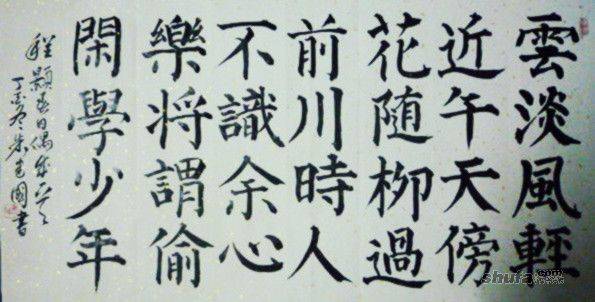 雲淡風輕
近午天傍
花随柳過
前川時人
不識余心
樂将謂偷
閑學少年
程顥春日偶成
丁亥冬朱國書
shufa.com